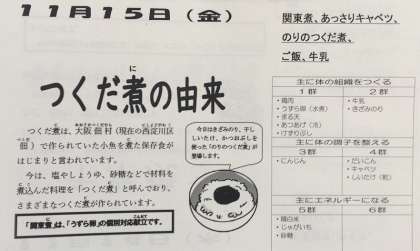 11月15日（金）
つくだ煮の由来
に
つくだ煮は、大阪佃村（現在の西淀川区
佃）で作られていた小魚を煮た保存食が
はじまりと言われています。
今は、塩やしょうゆ、砂糖などで材料を
煮込んだ料理を「つくだ煮」と呼んでおり、
さまざまなつくだ煮が作られています。
「関東煮」は、「うずら卵」の個別対応献立です。
今日はきざみのり、干し
しいたけ、かつおぶしを
使った「のりのつくだ煮」が
登場します。
関東煮、あっさりキャベツ、
のりのつくだ煮、
ご飯、牛乳
主に体の組織をつくる
1群 2群
・鶏肉
・うずら卵（水煮）
・まる天
・あつあげ（冷）
・けずりぶし
・牛乳
・きざみのり
主に体の調子を整える
3群 4群
・にんじん
・だいこん
・キャベツ
・しいたけ（乾）
主にエネルギーになる
5群 6群
・精白米
・じゃがいも
・砂糖